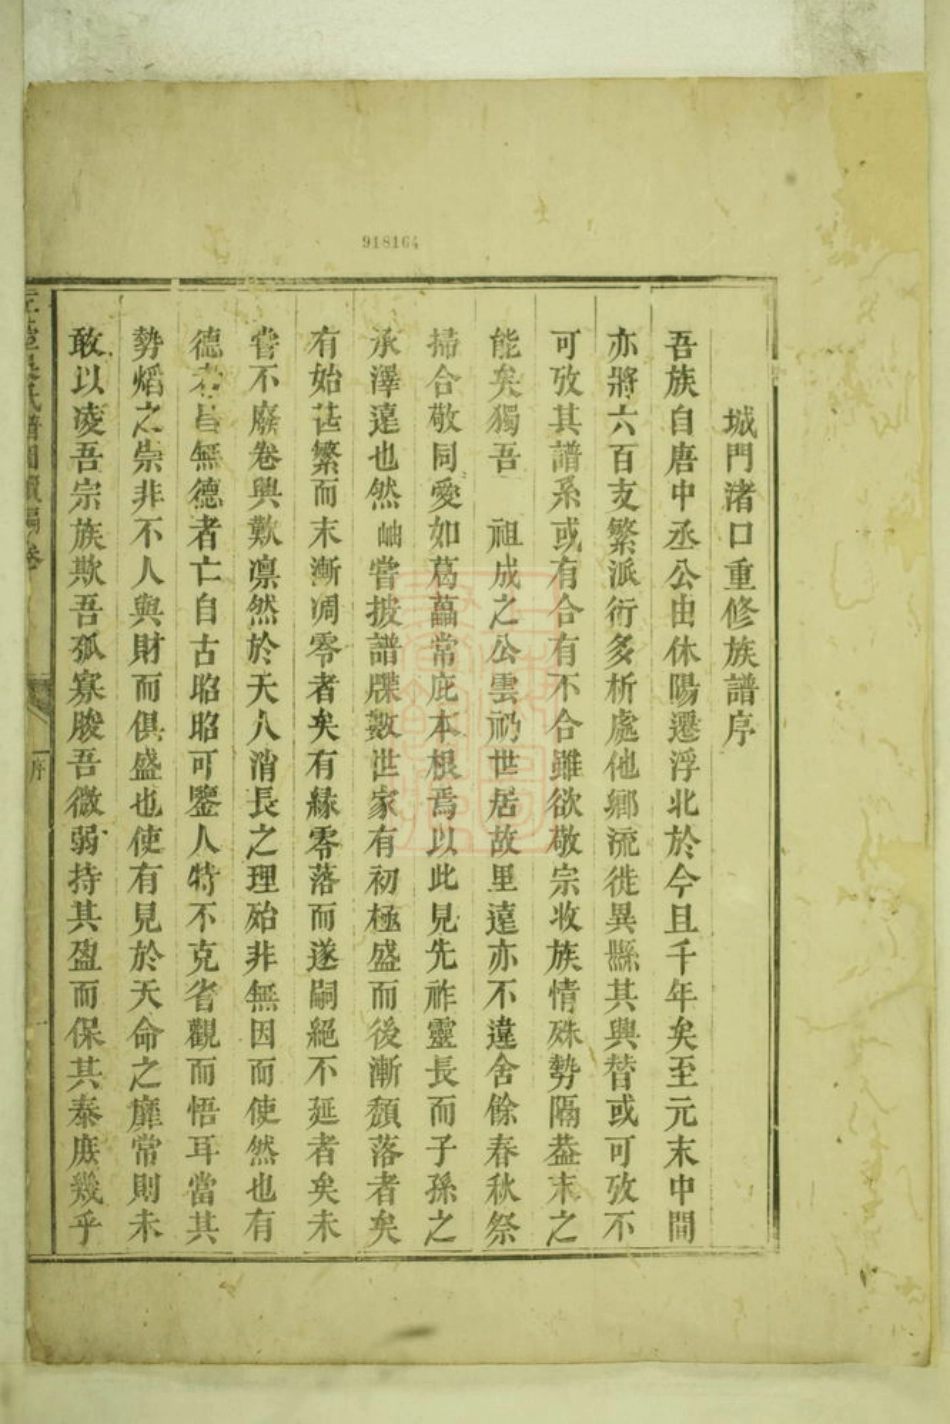 918164
城門渚口重修族譜序
吾族自唐中丞公由休陽遷浮北於今且千年矣至元末中間
亦將六百支繁派衍多析處他鄉流徙異縣其興替或可攷不
可攷其譜系或有合有不合雖欲敬宗收族情殊勢隔葢末之
能矣獨吾 祖成之公雲礽世居故里遠亦不違舍餘春秋祭
掃合敬同愛如葛藟常庇本根焉以此見先祚靈長而子孫之
承澤遠也然岫嘗披譜牒數世家有初極盛而後漸頹落者矣
有始甚繁而末漸凋零者矣有緣零落而遂嗣絕不延者矣未
嘗不廢卷興歎凛然於天人消長之理殆非無因而使然也有
德者昌無德者亡自古昭昭可鑒人特不克省觀而悟耳當其
勢熖之崇非不人與財而俱盛也使有見於天命之靡常則未
敢以凌吾宗族欺吾孤寡朘吾微弱持其盈而保其泰庶幾乎
氏譜圖續編卷
序
一